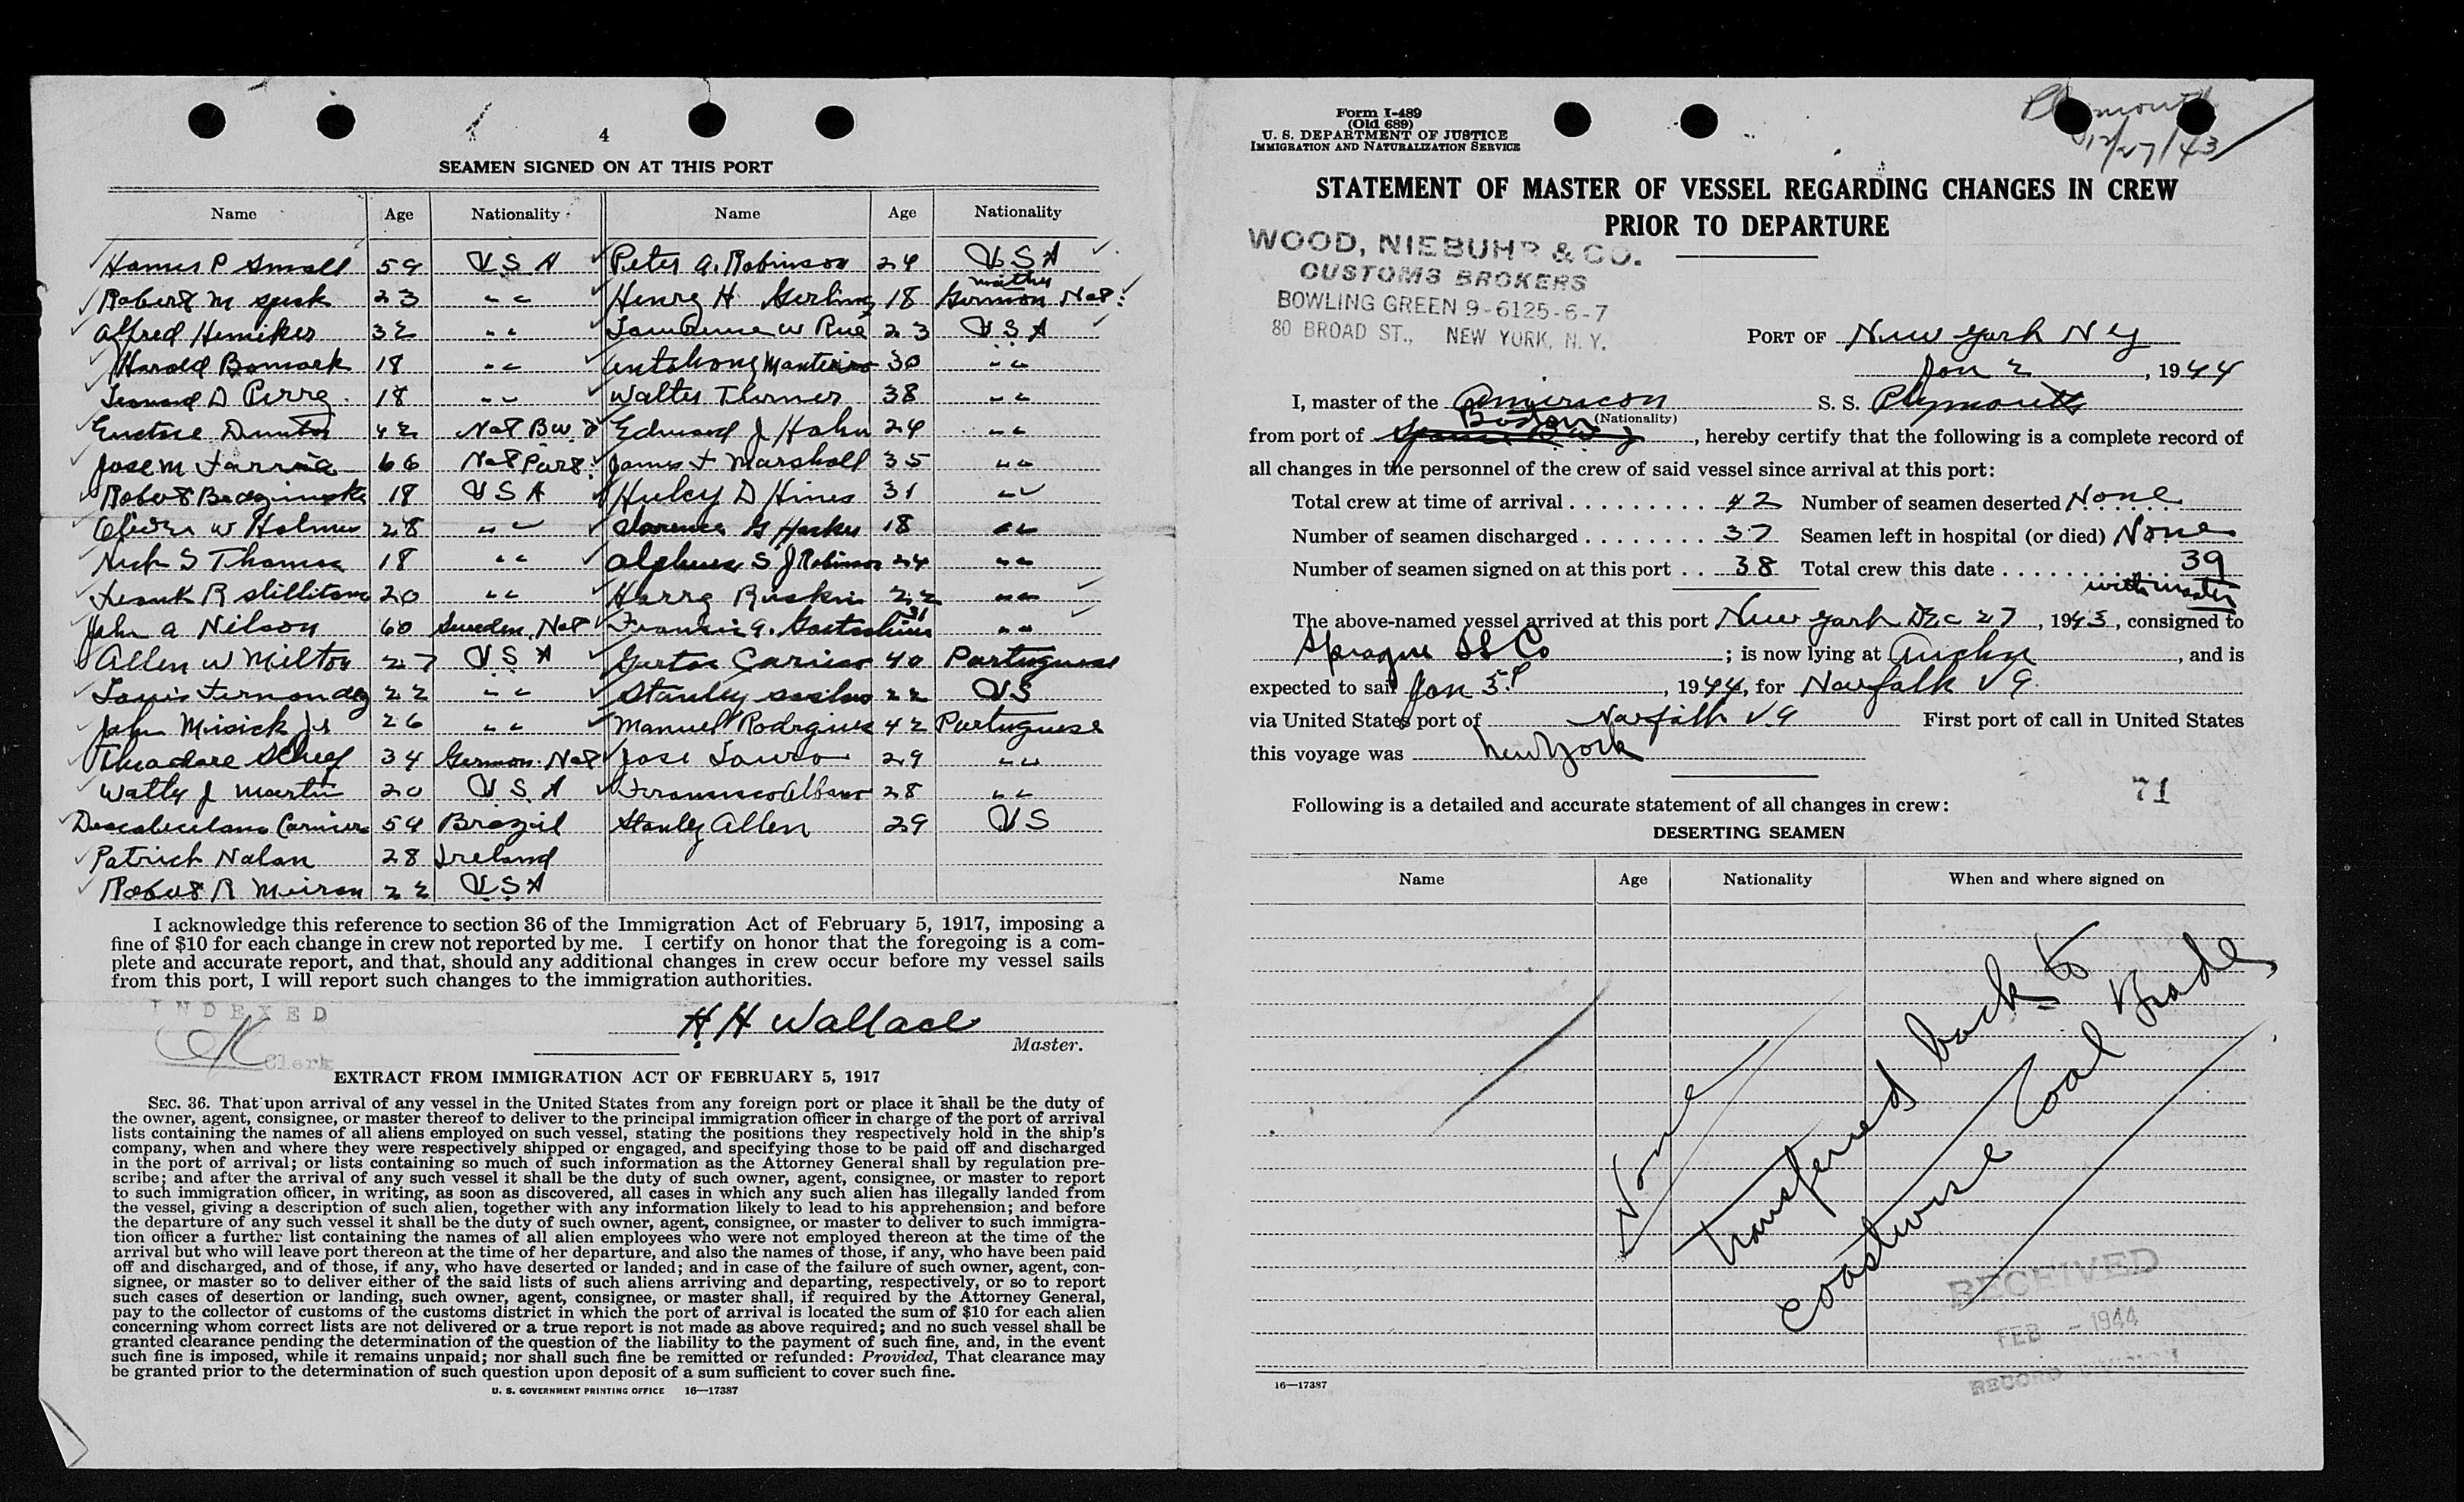 4
SEAMEN SIGNED ON AT THIS PORT
Name Age Nationality Name Age Nationality
James P Small 59 U S A Peter A. Robinson 24 U S A
Robert M 23 " " Henry H Gerling 18 German Nat
Alfred 32 " " Lawrence W Rue 23 U S A
Harold 18 " " 30 " "
Leonard D Perry 18 " " Walter 38 " "
42 Nat B W I Edward J Hahn 24 " "
Jose M 66 Nat Port. James F Marshall 35 " "
Robert 18 U S A Huley D Hines 31 " "
Oliver W Holmes 28 " " Clarence G 18 " "
Nick S Thomas 18 " " S J Robinson 24 " "
Frank R 20 " " Harry Ruskin 22 " "
John A Nilson 60 Sweden Nat Francis A. 31 " "
Allen W Milton 27 U S A 40 Portuguese
Louis Fernandez 22 " " Stanley 22 U S
John Misick Jr 26 " " Manuel Rodrigues 42 Portuguese
Theodore 34 German Nat Jose 29 " "
J Martin 20 U S A Francisco 28 " "
54 Brazil Stanley Allen 29 U S
Patrick Nolan 28 Ireland
Robert R 22 U S A
I acknowledge this reference to section 36 of the Immigration Act of February 5, 1917, imposing a
fine of $10 for each change in crew not reported by me. I certify on honor that the foregoing is a com-
plete and accurate report, and that, should any additional changes in crew occur before my vessel sails
from this port, I will report such changes to the immigration authorities.
INDEXED
Clerk
H H Wallace
Master.
EXTRACT FROM IMMIGRATION ACT OF FEBRUARY 5, 1917
SEC. 36. That upon arrival of any vessel in the United States from any foreign port or place it shall be the duty of
the owner, agent, consignee, or master thereof to deliver to the principal immigration officer in charge of the port of arrival
lists containing the names of all aliens employed on such vessel, stating the positions they respectively hold in the ship's
company, when and where they were respectively shipped or engaged, and specifying those to be paid off and discharged
in the port of arrival; or lists containing so much of such information as the Attorney General shall by regulation pre-
scribe; and after the arrival of any such vessel it shall be the duty of such owner, agent, consignee, or master to report
to such immigration officer, in writing, as soon as discovered, all cases in which any such alien has illegally landed from
the vessel, giving a description of such alien, together with any information likely to lead to his apprehension; and before
the departure of any such vessel it shall be the duty of such owner, agent, consignee, or master to deliver to such immigra-
tion officer a further list containing the names of all alien employees who were not employed thereon at the time of the
arrival but who will leave port thereon at the time of her departure, and also the names of those, if any, who have been paid
off and discharged, and of those, if any, who have deserted or landed; and in case of the failure of such owner, agent, con-
signee, or master so to deliver either of the said lists of such aliens arriving and departing, respectively, or so to report
such cases of desertion or landing, such owner, agent, consignee, or master shall, if required by the Attorney General,
pay to the collector of customs of the customs district in which the port of arrival is located the sum of $10 for each alien
concerning whom correct lists are not delivered or a true report is not made as above required; and no such vessel shall be
granted clearance pending the determination of the question of the liability to the payment of such fine, and, in the event
such fine is imposed, while it remains unpaid; nor shall such fine be remitted or refunded: Provided, That clearance may
be granted prior to the determination of such question upon deposit of a sum sufficient to cover such fine.
U. S. GOVERNMENT PRINTING OFFICE 16—17387
Plymouth
12/27/43
Form I-489
(Old 689)
U. S. DEPARTMENT OF JUSTICE
IMMIGRATION AND NATURALIZATION SERVICE
STATEMENT OF MASTER OF VESSEL REGARDING CHANGES IN CREW
PRIOR TO DEPARTURE
WOOD, NIEBUHR & CO.
CUSTOMS BROKERS
BOWLING GREEN 9-6125-6-7
80 BROAD ST., NEW YORK, N. Y.
PORT OF New York N Y
Jan 2, 1944
I, master of the American S. S. Plymouth
(Nationality)
from port of Boston, hereby certify that the following is a complete record of
all changes in the personnel of the crew of said vessel since arrival at this port:
Total crew at time of arrival 42 Number of seamen deserted None
Number of seamen discharged 37 Seamen left in hospital (or died) None
Number of seamen signed on at this port 38 Total crew this date 39
with master
The above-named vessel arrived at this port New York Dec 27, 1943, consigned to
Sprague SS Co; is now lying at, and is
expected to sail Jan 3, 1944, for Norfolk Va
via United States port of Norfolk Va First port of call in United States
this voyage was New York
71
Following is a detailed and accurate statement of all changes in crew:
DESERTING SEAMEN
Name Age Nationality When and where signed on
None
Transferred back to
Coastwise Coal Trade
RECEIVED
FEB - 1944
RECORD DIVISION
16—17387